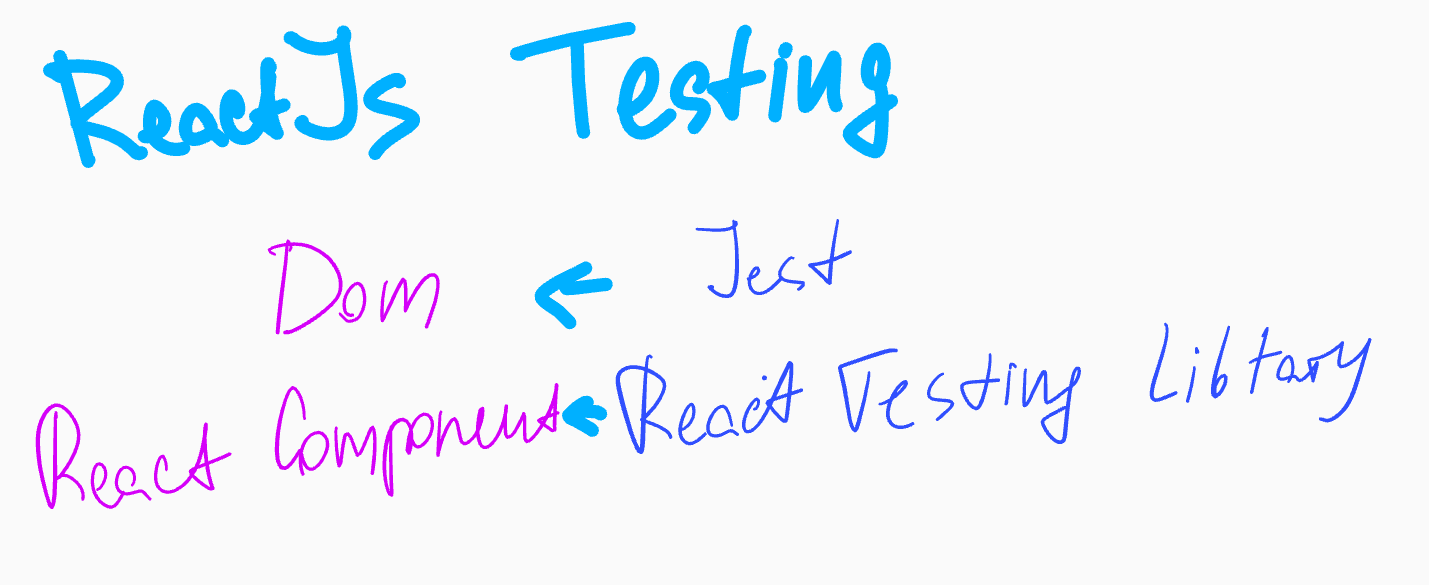 ReactJs Testing
Dom ← Jest
React Component ← React Testing Library